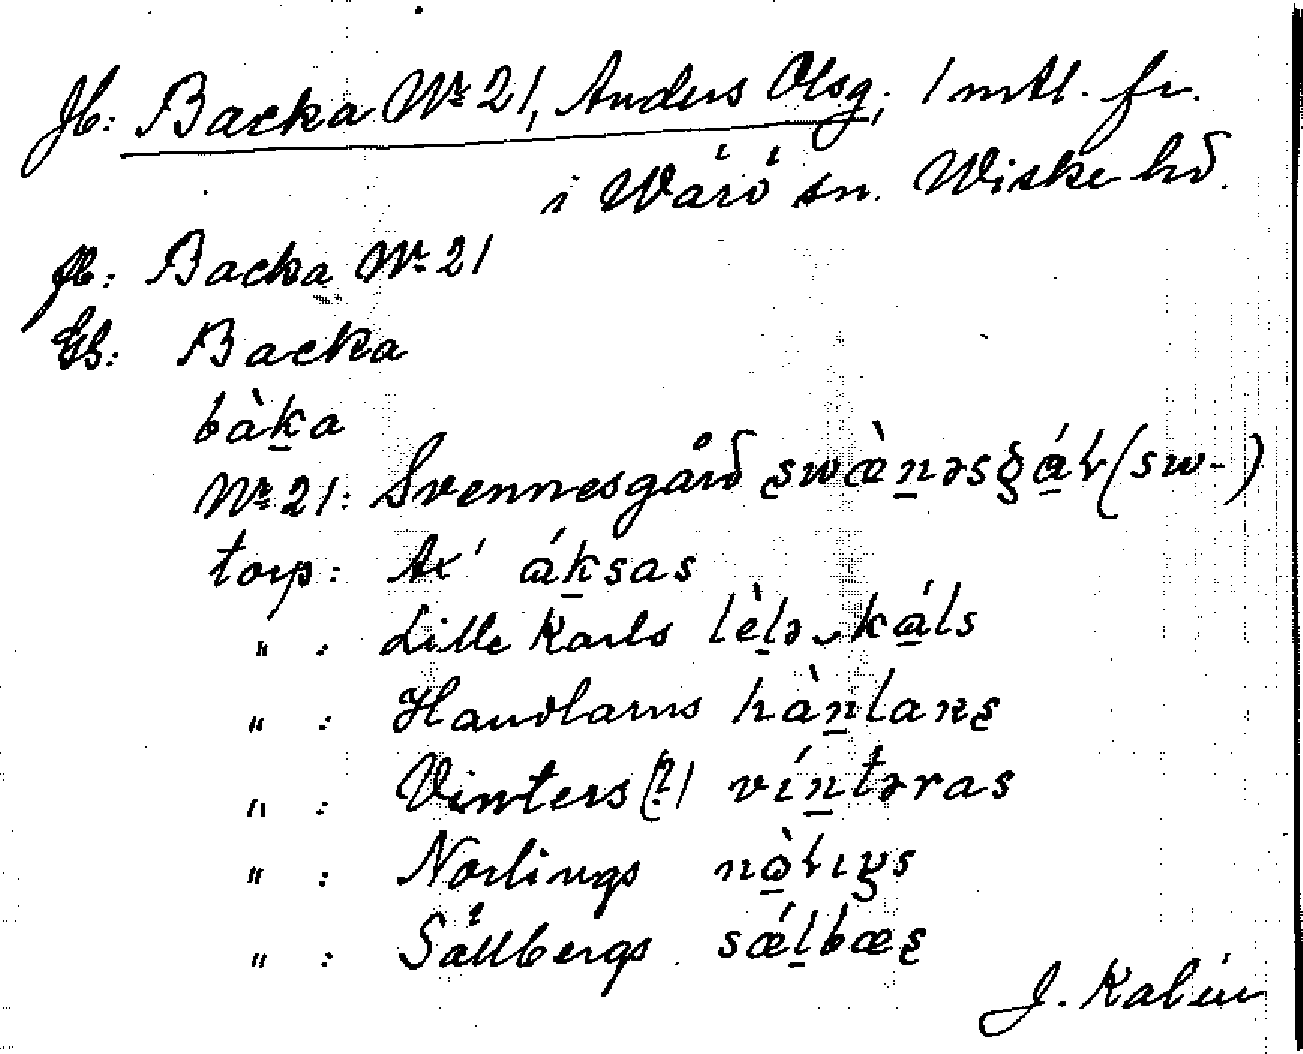 Jb: Backa Nr 21, Anders Olsg, 1 mtl. fr.
i Wärö sn. Wiske hd.
Jb: Backa Nr 21
Gb: Backa
bàka
Nr 21: Svennesgård swæ̀nəsgáɽ (sw-)
torp: Ax' áksas
" : Lille Karls lèlə-káls
" : Handlarns hànlans
" : Vinters (?) víntəras
" : Norlings nòɽıŋs
" : Sällbergs sǽlbæs
J. Kalén